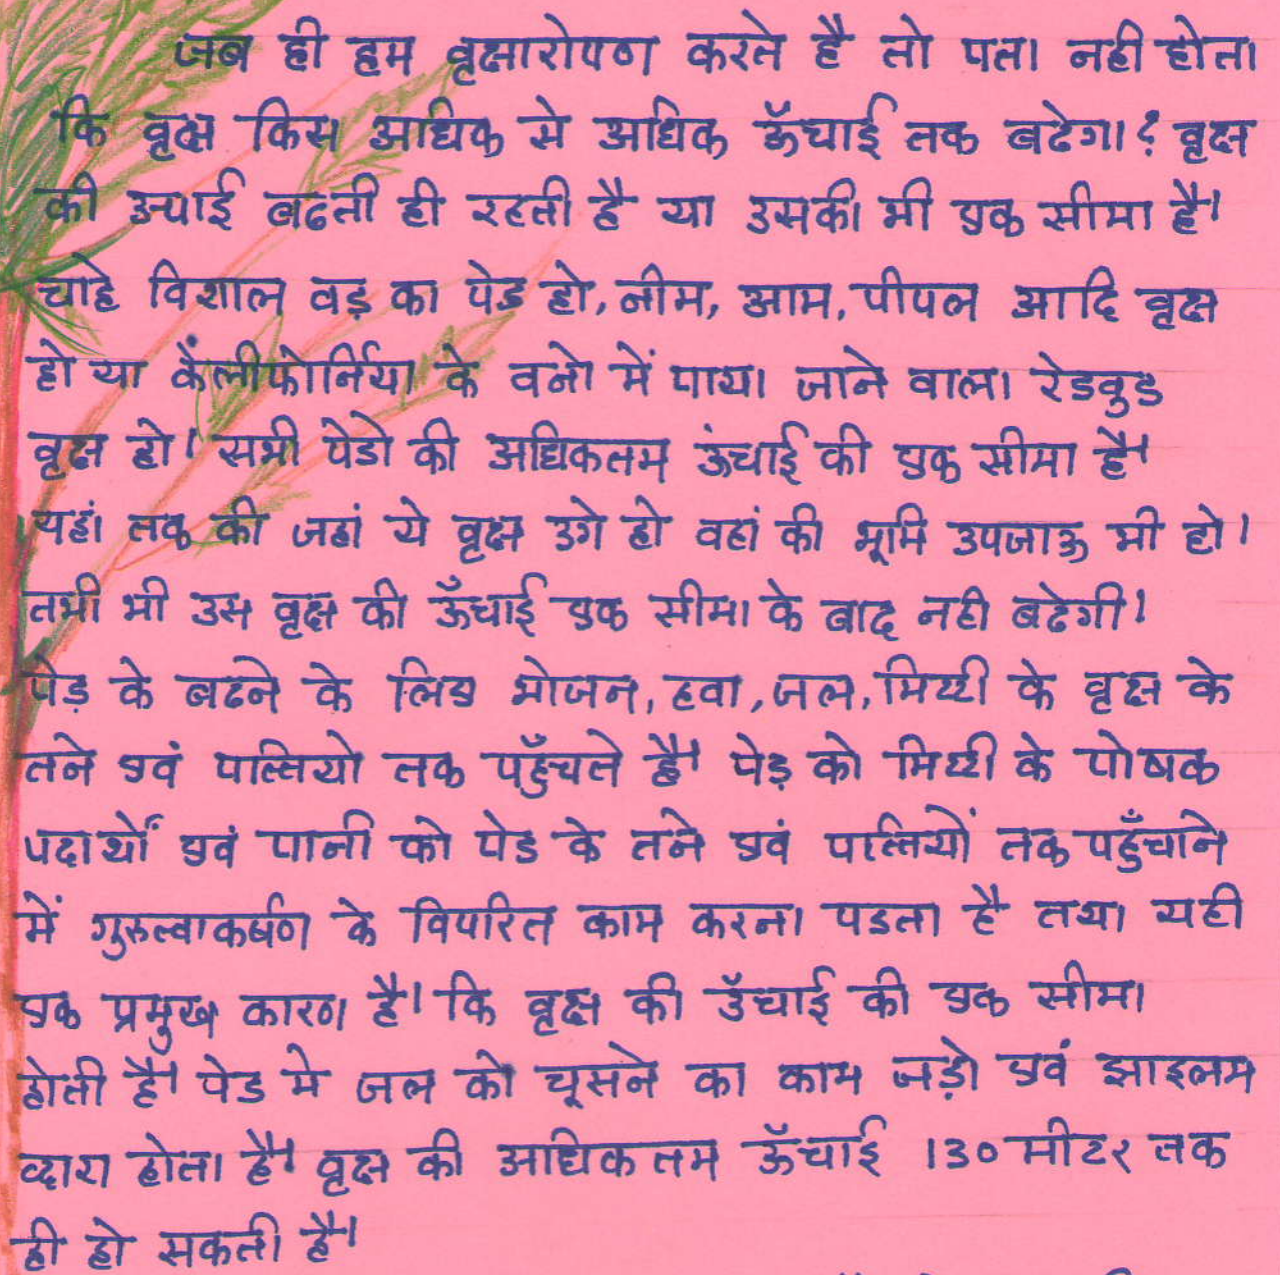 जब ही हम वृक्षारोपण करते है तो पता नही होता
कि वृक्ष किस अधिक से अधिक ऊँचाई तक बढेगा? वृक्ष
की उचाई बढती ही रहती है या उसकी भी एक सीमा है।
चाहे विशाल वड़ का पेड हो, नीम, आम, पीपल आदि वृक्ष
हो या कैंलीफोर्निया के वनो में पाया जाने वाला रेडवुड
वृक्ष हो। सभी पेडो की अधिकतम ऊंचाई की एक सीमा है।
यहां तक की जहां ये वृक्ष उगे हो वहां की भूमि उपजाऊ भी हो।
तभी भी उस वृक्ष की ऊँचाई एक सीमा के बाद नही बढेगी।
पेड़ के बढने के लिए भोजन, हवा, जल, मिट्टी के वृक्ष के
तने एवं पत्तियो तक पहुँचते है। पेड़ को मिट्टी के पोषक
पदार्थों एवं पानी को पेड के तने एवं पत्तियों तक पहुँचाने
में गुरुत्वाकर्षण के विपरित काम करना पडता है तथा यही
एक प्रमुख कारण है। कि वृक्ष की उँचाई की एक सीमा
होती है। पेड मे जल को चूसने का काम जड़ो एवं झाइलम
व्दारा होता है। वृक्ष की अधिकतम ऊँचाई 130 मीटर तक
ही हो सकती है।